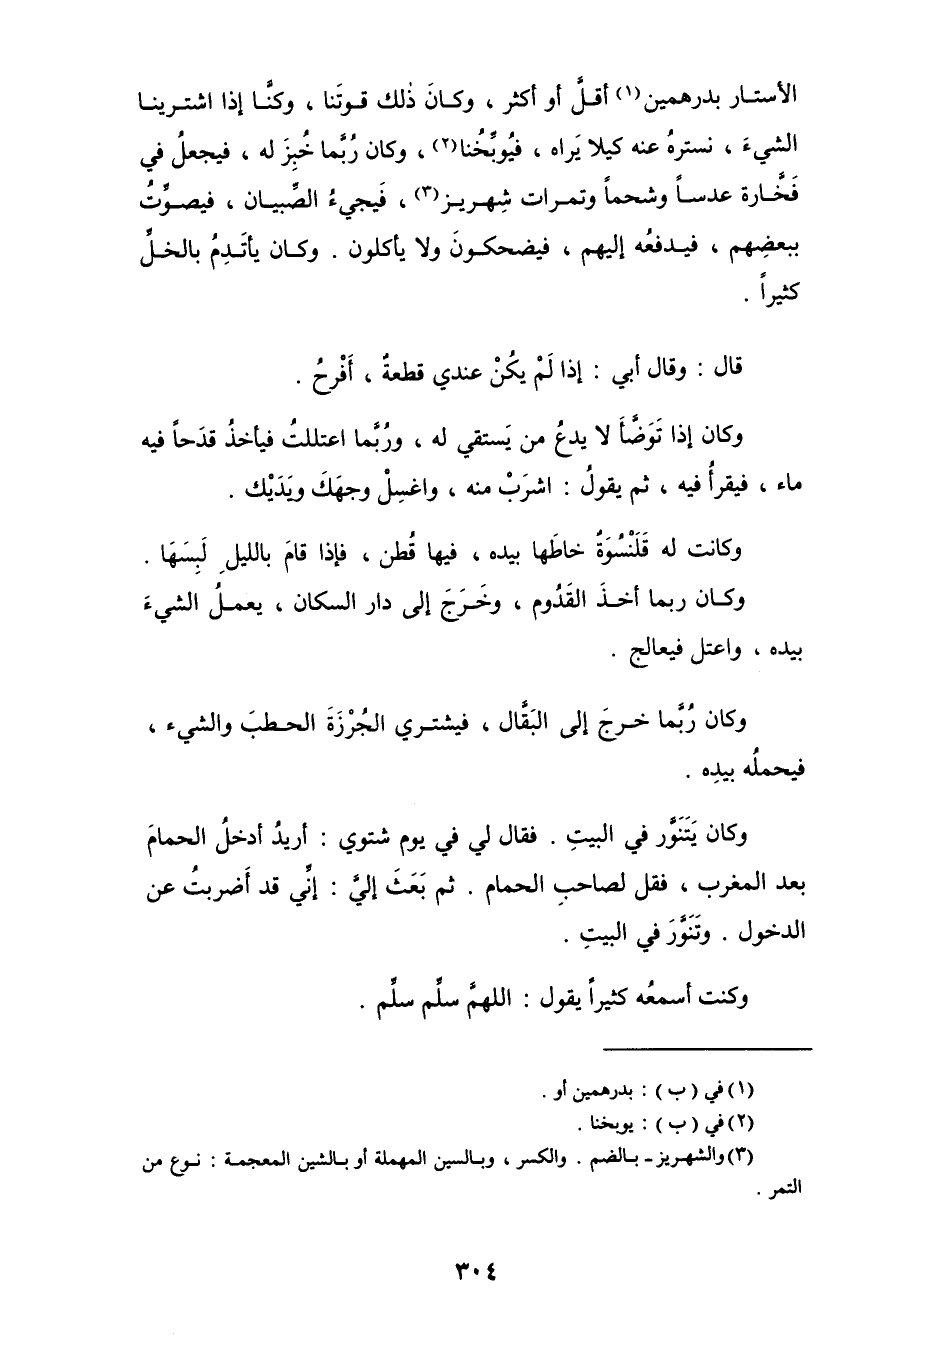 الأستـار بدرهمين(١) أقلَّ أو أكثر ، وكـانَ ذٰلك قـوتَنا ، وكنَّـا إذا اشتـرينـا
الشيءَ ، نسترهُ عنه كيلا يَراه ، فيُوبِّخُنا(٢) ، وكان رُبَّما خُبِزَ له ، فيجعلُ في
فَخَّـارة عدسـاً وشحماً وتمـرات شِهـريـز(٣) ، فَيجيءُ الصِّبيـان ، فيصـوِّتُ
ببعضِهم ، فيـدفعُه إليهم ، فيضحكـونَ ولا يأكلون . وكـان يأتَـدِمُ بالخلِّ
كثيراً .
قال : وقال أبي : إذا لَمْ يكُنْ عندي قطعةٌ ، أَفْرحُ .
وكان إذا تَوَضَّأَ لا يدعُ من يَستقي له ، ورُبَّما اعتللتُ فيأخذُ قدَحاً فيه
ماء ، فيقرأُ فيه ، ثم يقولُ : اشرَبْ منه ، واغسِلْ وجهَكَ ويَدَيْك .
وكانت له قَلَنْسُوَةٌ خاطَها بيده ، فيها قُطن ، فإذا قامَ بالليلِ لَبِسَهَا .
وكـان ربما أخـذَ القَدُوم ، وخَـرَجَ إلى دار السكان ، يعمـلُ الشيءَ
بيده ، واعتل فيعالج .
وكان رُبَّما خـرجَ إلى البَقَّال ، فيشتـري الجُرْزَةَ الحـطبَ والشيء ،
فيحملُه بيدِه .
وكان يَتَنَوَّر في البيتِ . فقال لي في يوم شتوي : أريدُ أدخلُ الحمامَ
بعد المغرب ، فقل لصاحبِ الحمام . ثم بَعَثَ إليَّ : إنِّي قد أَضربتُ عن
الدخول . وتَنَوَّرَ في البيتِ .
وكنت أسمعُه كثيراً يقول : اللهمَّ سلِّم سلِّم .
(١) في ( ب ) : بدرهمين أو .
(٢) في ( ب ) : يوبخنا .
(٣) والشهـريز ـ بـالضم . والكسر ، وبـالسين المهملة أو بـالشين المعجمـة : نـوع من
التمر .
٣٠٤